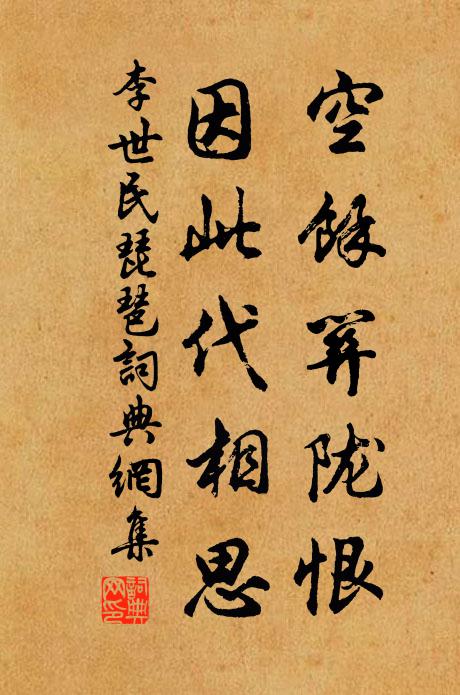 空餘關陇恨
因此代相思
李世民琵琶詞典網集
詞典网印